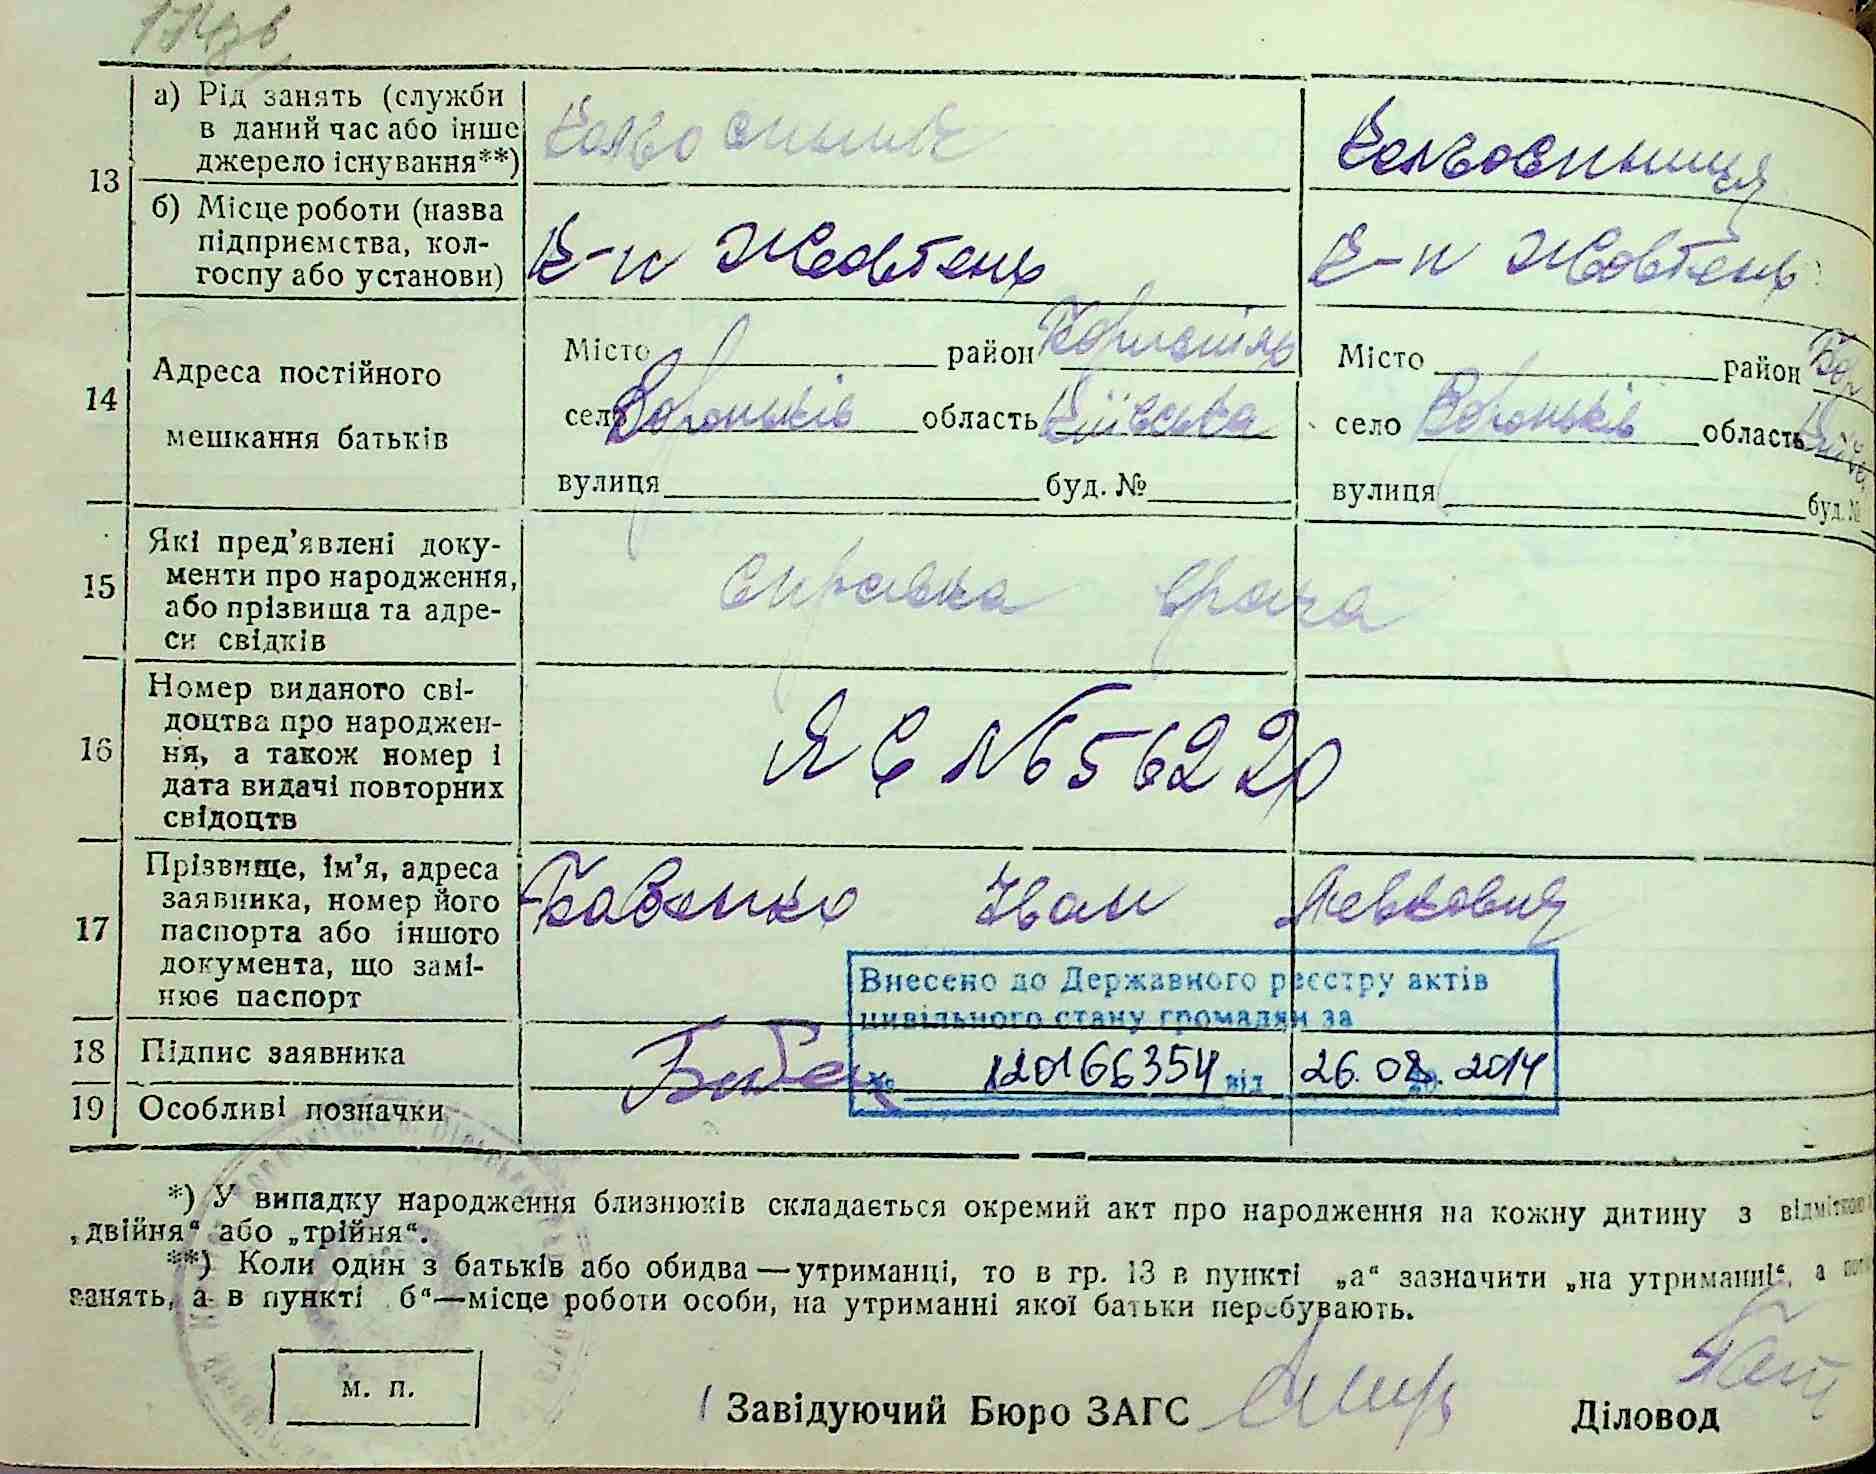 13
а) Рід занять (служби
в даний час або інше
джерело існування**)
Колгоспник
Колгоспниця
б) Місце роботи (назва
підприємства, кол-
госпу або установи)
К-п Жовтень
К-п Жовтень
14
Адреса постійного
мешкання батьків
Місто район Бориспіль
село Вороньків область Київська
вулиця буд. №
Місто район Бор
село Вороньків область Київ
вулиця буд. №
15
Які пред’явлені доку-
менти про народження,
або прізвища та адре-
си свідків
справка врача
16
Номер виданого сві-
доцтва про народжен-
ня, а також номер і
дата видачі повторних
свідоцтв
ЯС №656220
17
Прізвище, ім’я, адреса
заявника, номер його
паспорта або іншого
документа, що замі-
нює паспорт
Бабенко Іван Левкович
Внесено до Державного реєстру актів
цивільного стану громадян за
№ 120166354 від 26.08.2014
18 Підпис заявника
Бабен
19 Особливі позначки
*) У випадку народження близнюків складається окремий акт про народження на кожну дитину з відміткою
„двійня“ або „трійня“.
**) Коли один з батьків або обидва—утриманці, то в гр. 13 в пункті „а“ зазначити „на утриманні“, а
занять, а в пункті б“—місце роботи особи, на утриманні якої батьки перебувають.
м. п.
Завідуючий Бюро ЗАГС
Діловод